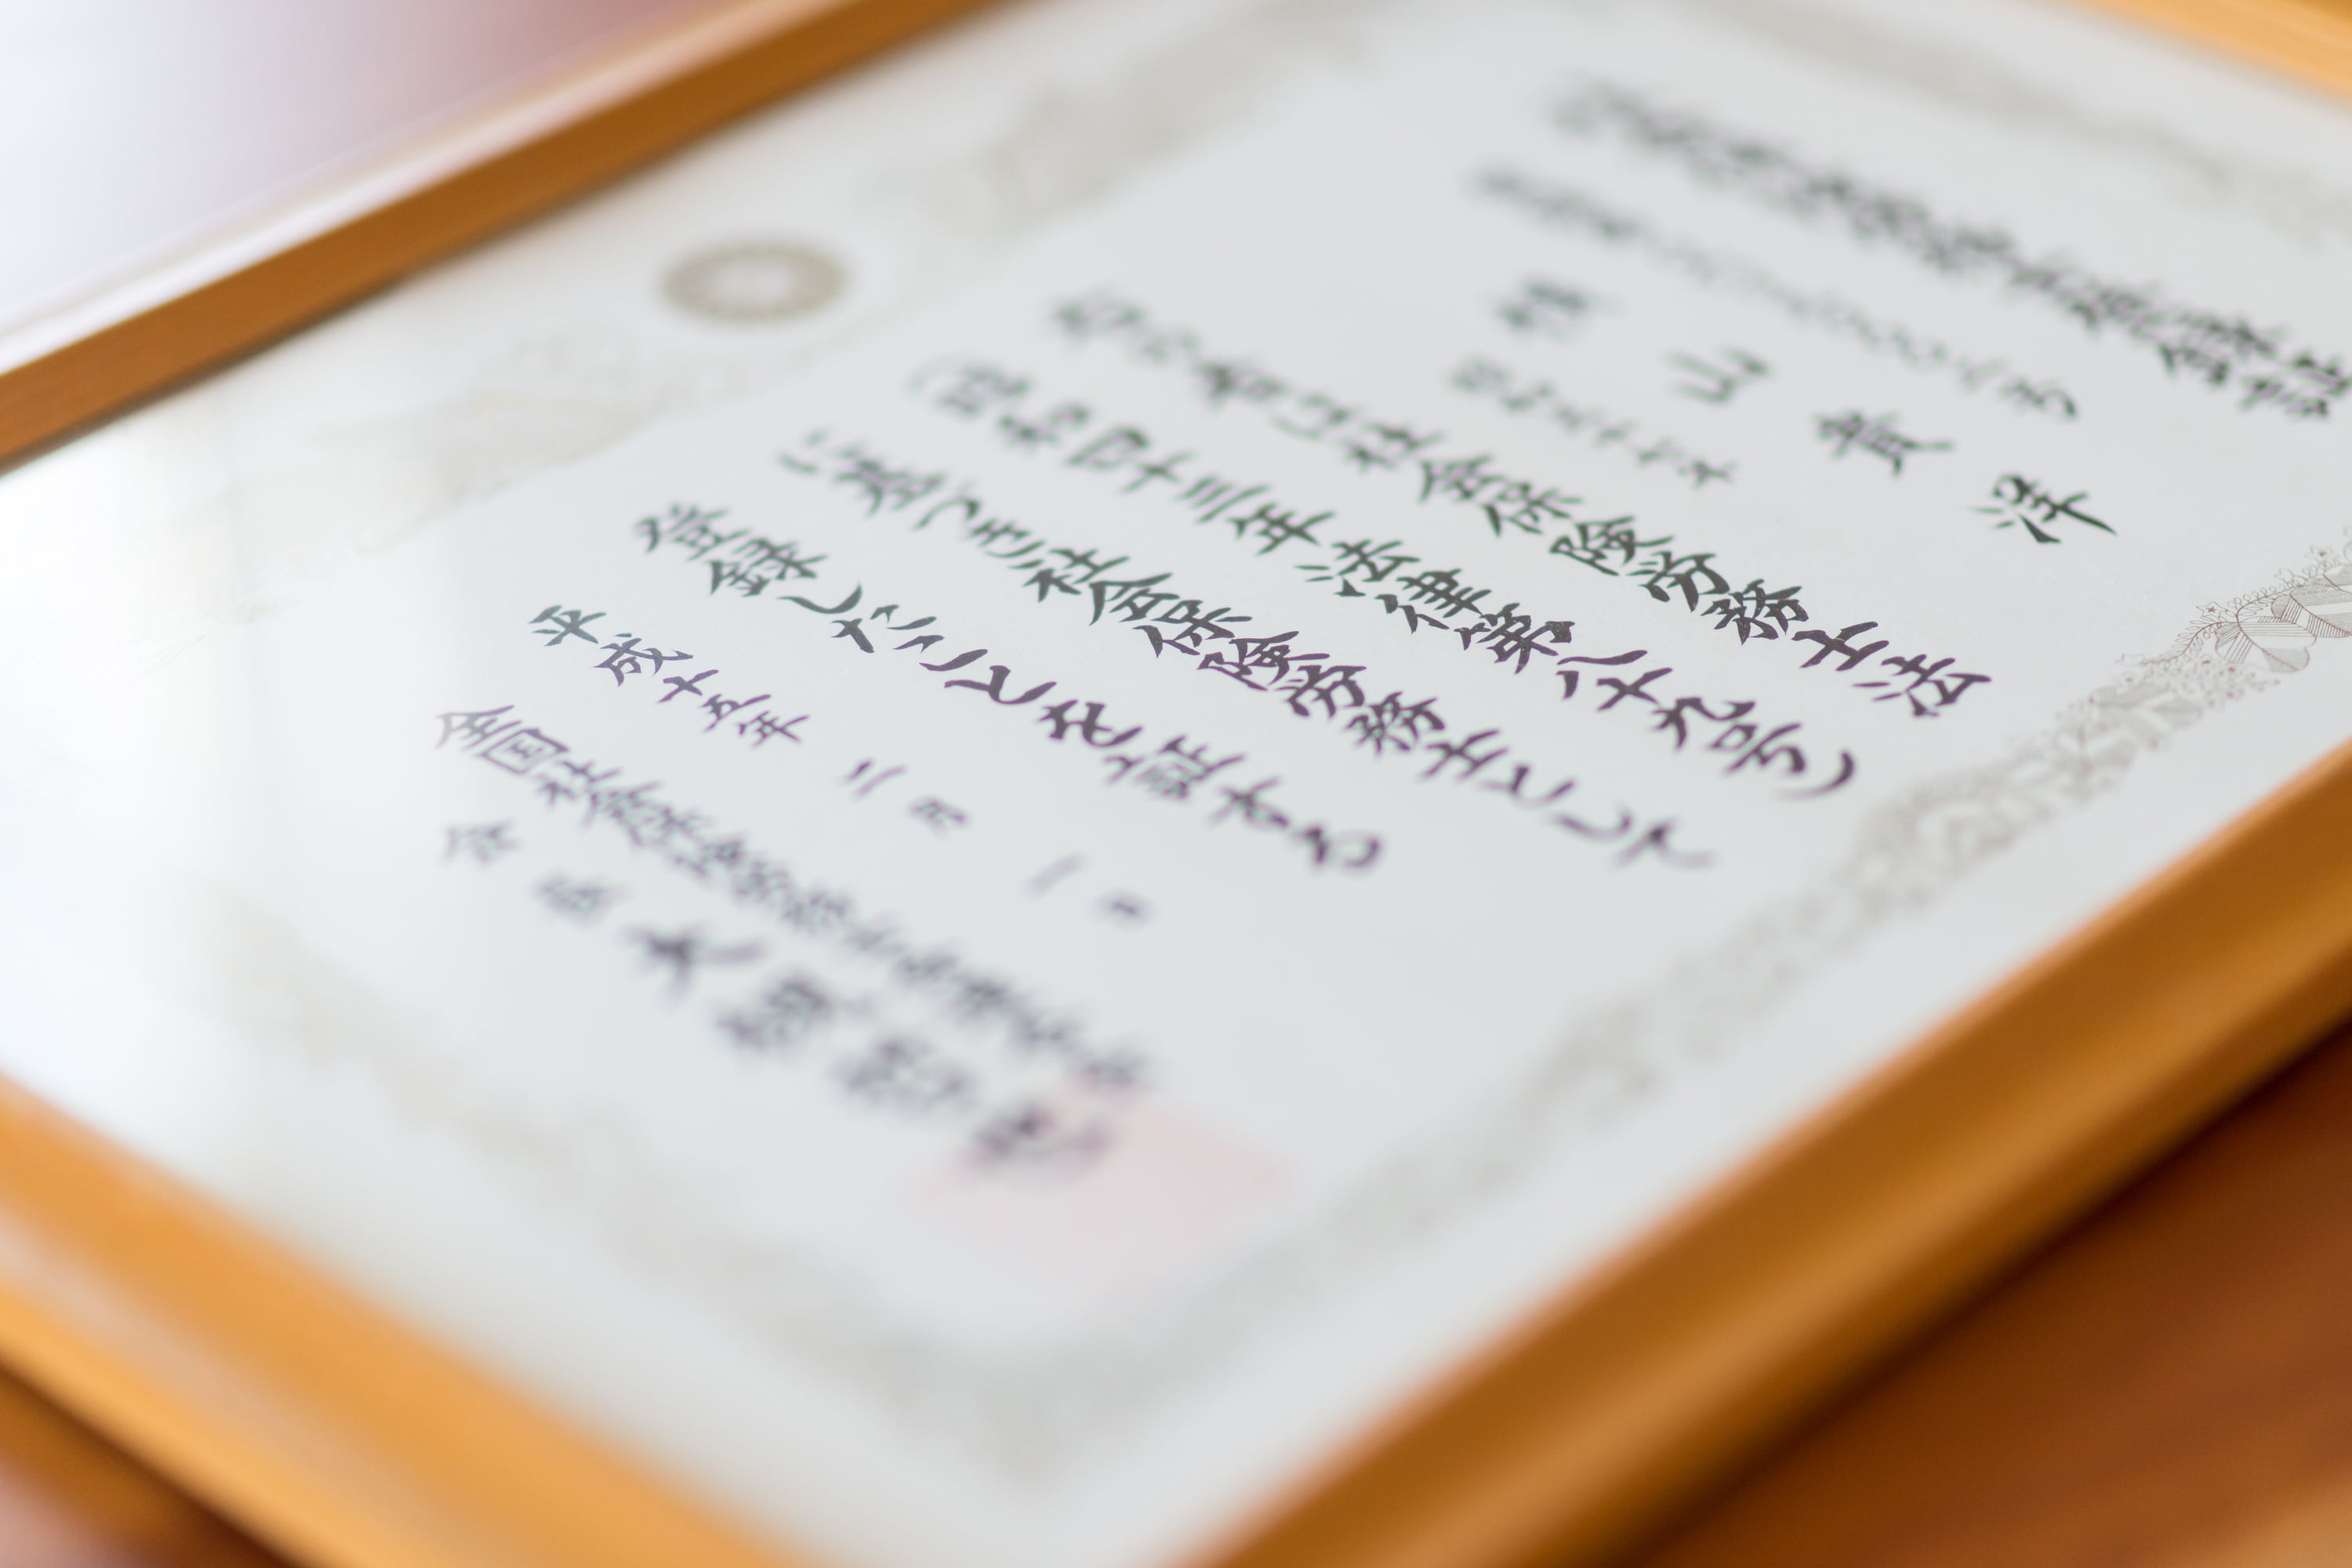 登録証
山貴洋
右の者は社会保険労務士法
(昭和四十三年法律第八十九号)
に基づき社会保険労務士として
登録したことを証する
平成十五年二月一日
全国社会保険労務士会連合会
会長大槻哲也